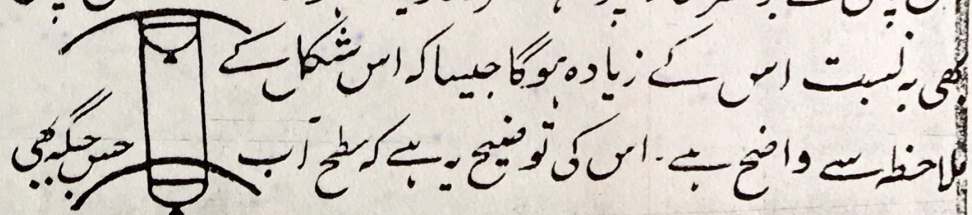 بھی بہ نسبت اس کے زیادہ ہوگا جیسا کہ اس شکل کے
ملاحظہ سے واضح ہے۔ اس کی توضیح یہ ہے کہ سطح آب جس جگہ بھی